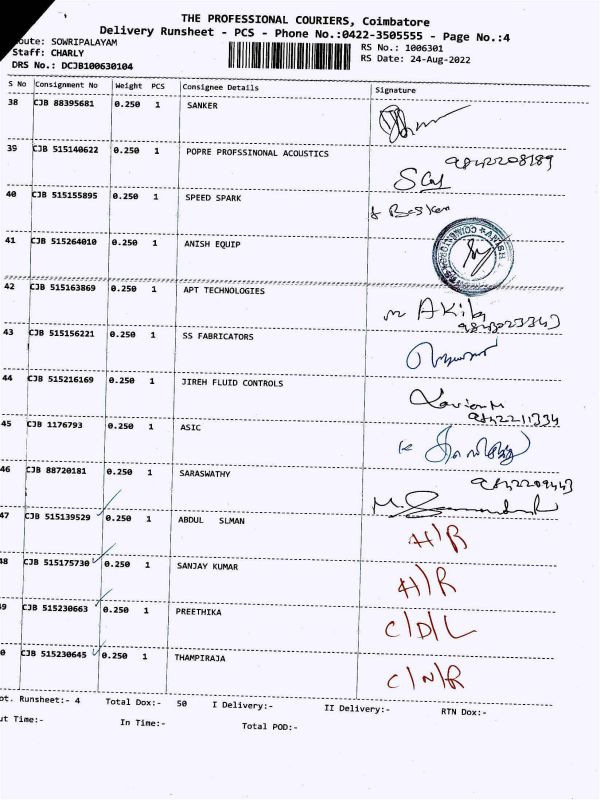 THE PROFESSIONAL COURIERS, Coimbatore
Delivery Runsheet - PCS - Phone No.:0422-3505555 - Page No.:4
oute: SOWRIPALAYAM RS No.: 1006301
Staff: CHARLY RS Date: 24-Aug-2022
DRS No.: DCJB100630104
S No Consignment No Weight PCS Consignee Details Signature
38 CJB 88395681 0.250 1 SANKER
39 CJB 515140622 0.250 1 POPRE PROFSSINONAL ACOUSTICS 9842208189
40 CJB 515155895 0.250 1 SPEED SPARK
41 CJB 515264010 0.250 1 ANISH EQUIP
42 CJB 515163869 0.250 1 APT TECHNOLOGIES
43 CJB 515156221 0.250 1 SS FABRICATORS
44 CJB 515216169 0.250 1 JIREH FLUID CONTROLS
9842211334
45 CJB 1176793 0.250 1 ASIC
46 CJB 88720181 0.250 1 SARASWATHY 9842209443
47 CJB 515139529 0.250 1 ABDUL SLMAN H/R
48 CJB 515175730 0.250 1 SANJAY KUMAR H/R
49 CJB 515230663 0.250 1 PREETHIKA C/D/L
0 CJB 515230645 0.250 1 THAMPIRAJA C/N/R
ot. Runsheet:- 4 Total Dox:- 50 I Delivery:- II Delivery:- RTN Dox:-
ut Time:- In Time:- Total POD:-